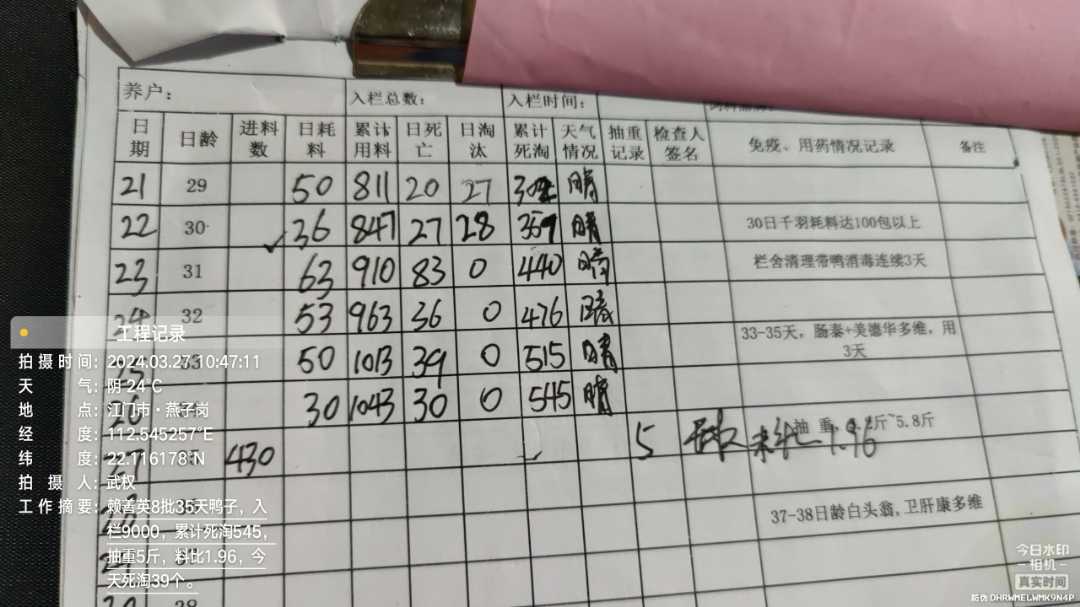 养户： 入栏总数： 入栏时间：
日期 日龄 进料数 日耗料 累计用料 日死亡 日淘汰 累计死淘 天气情况 抽重记录 检查人签名 免疫、用药情况记录 备注
21 29 50 811 20 27 晴
22 30 36 847 27 28 359 晴 30日千羽耗料达100包以上
23 31 63 910 83 0 440 晴 栏舍清理带鸭消毒连续3天
24 32 53 963 36 0 476 晴
33-35天，肠泰+美德华多维，用3天
50 1013 39 0 515 晴
30 1043 30 0 545 晴
抽 重 斤~5.8斤
430 5 1.96
37-38日龄白头翁,卫肝康多维
38
工程记录
拍摄时间：2024.03.27 10:47:11
天气：阴 24℃
地点：江门市·燕子岗
经度：112.545257°E
纬度：22.116178°N
拍摄人：武权
工作摘要：赖善英8批35天鸭子，入
栏9000，累计死淘545，
抽重5斤，料比1.96，今
天死淘39个。
今日水印
相机
真实时间
防伪 DHRWMELWMK9N4P